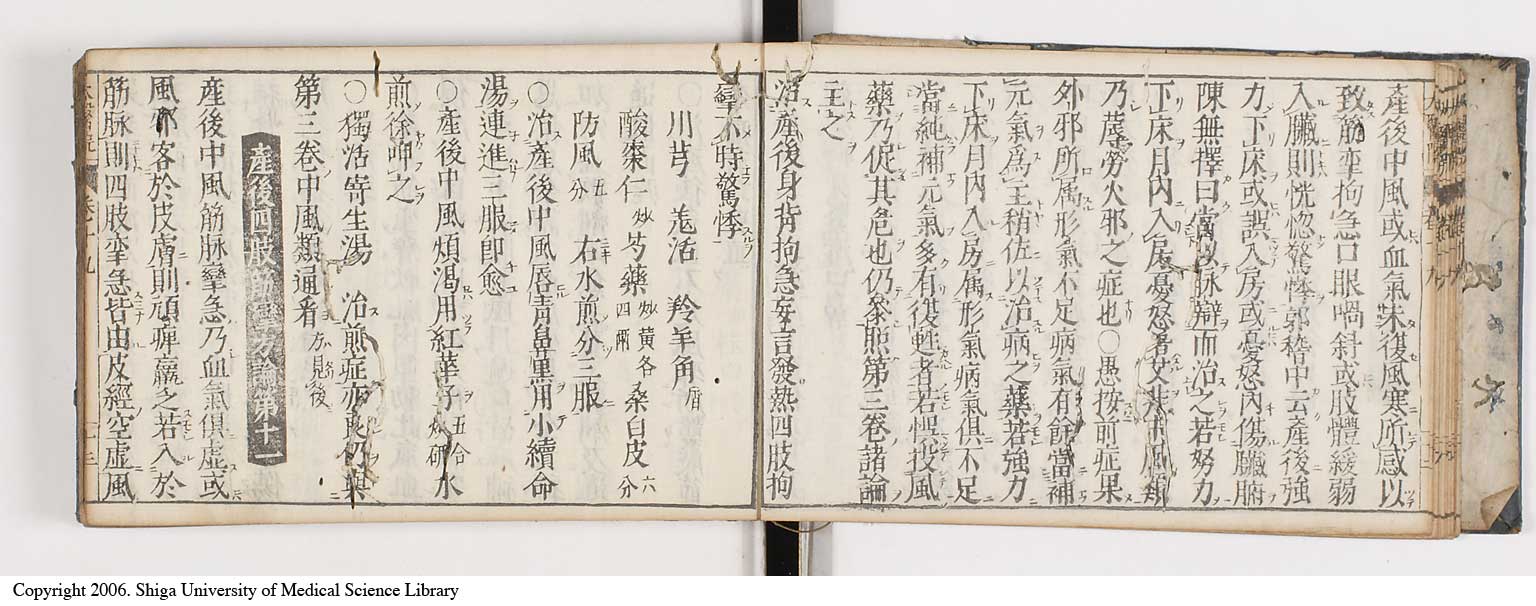 產後中風或血氣未復風寒所感以
致筋牽拘急口眼喎斜或肢體緩弱
入臟則恍惚驚悸郭稽中云產後強
力下床或誤入房或憂怒內傷臟腑
陳無擇曰當以脉辯而治之若努力
下床月內入房憂怒著艾非中風類
乃蓐勞火邪之症也○愚按前症果
外邪所屬形氣不足病氣有餘當補
元氣爲主稍佐以治病之藥若強力
下床月內入房屬形氣病氣俱不足
當純補元氣多有復甦者若悞投風
藥乃促其危也仍叅照第三卷諸論
主之
治產後身背拘急妄言發熱四肢拘
攣不時驚悸
川芎 羗活 羚羊角 屑
酸棗仁 炒 芍藥 炒黃各四兩 桑白皮 六分
防風 五分 右水煎分三服
○治產後中風唇青鼻黑用小續命
湯連進三服即愈
○產後中風煩渴用紅華子 五合炒研 水
煎徐呷之
○獨活寄生湯 治煎症亦良仍與
第三卷中風類通看 方見後
產後四肢筋攣方論第十一
產後中風筋脉攣急乃血氣俱虛或
風邪客於皮膚則頑痺羸乏若入於
筋脉則四肢牽急皆由皮經空虛風
Copyright 2006. Shiga University of Medical Science Library